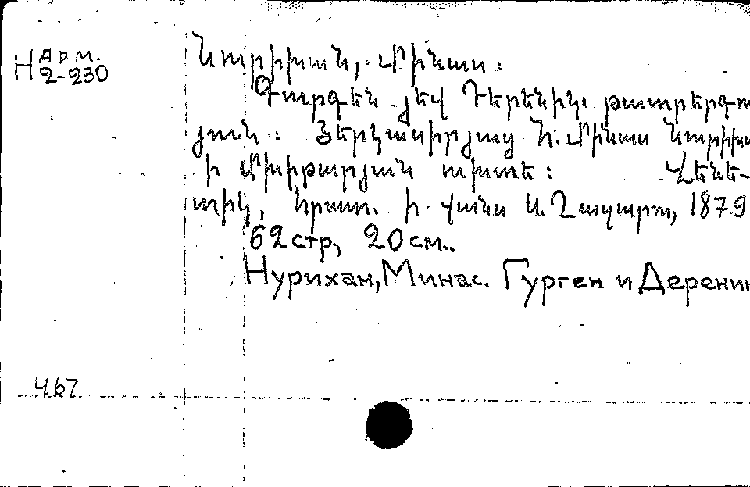 Н Арм.
2-230
Նուրիխան, Մինաս:
Գուրգեն յեվ Դերենիկ. թատրերգու
յուն: Յերկասիրյաց Հ. Մինաս Նուրիխ
ի Մխիթարյան ուխտե: Վենե-
տիկ, հրատ. ի վանս Ս. Ղազարու, 1879
62 стр, 20 см..
Нурихан, Минас. Гурген и Деренин
467